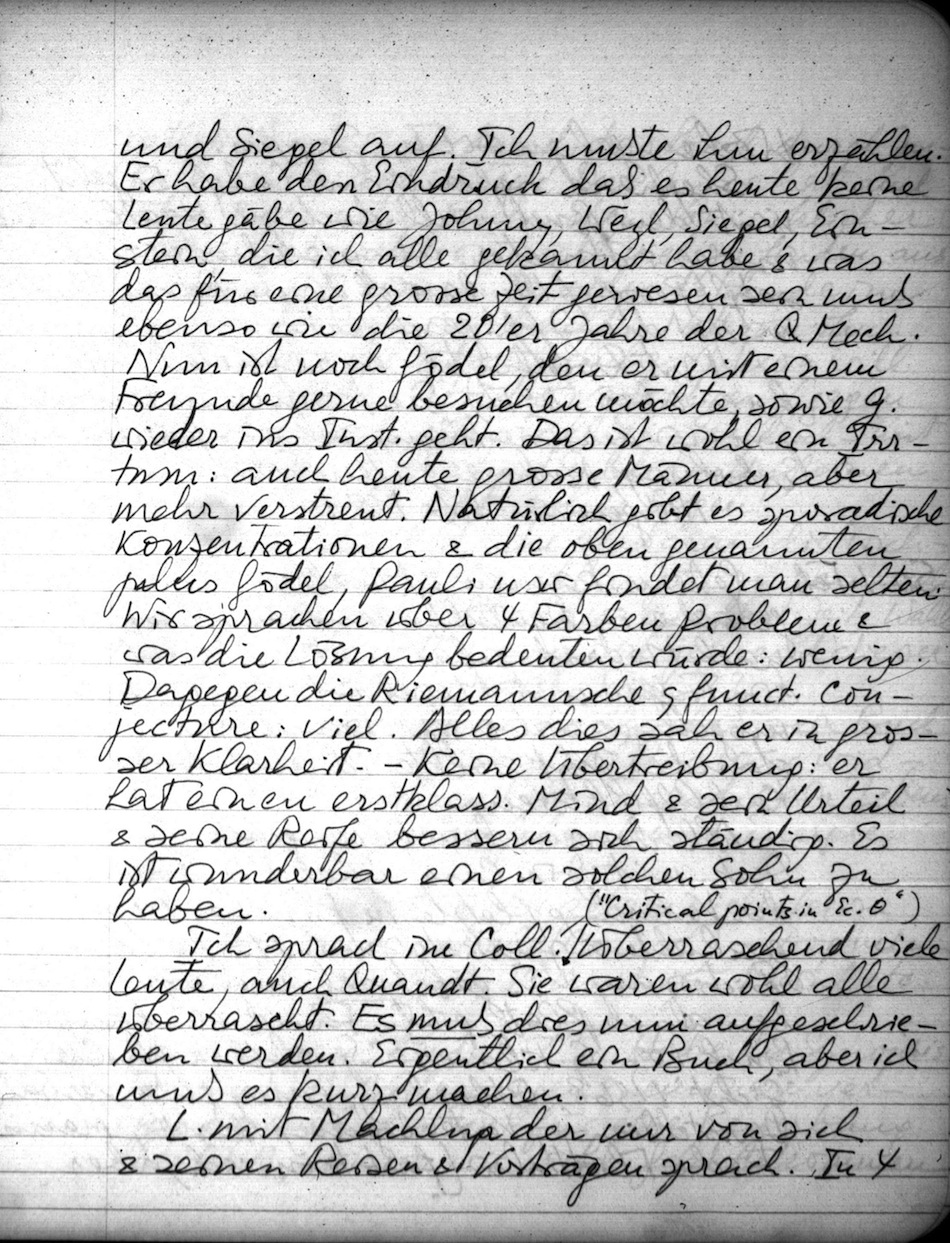 und Siegel auf. Ich musste ihm erzählen.
Er habe den Eindruck dass es heute keine
Leute gäbe wie Johnny, Weyl, Siegel, Ein-
stein, die ich alle gekannt habe & was
das für eine grosse Zeit gewesen sein muss
ebenso wie die 20'er Jahre der Q Mech.
Nun ist noch Gödel, den er mit einem
Freunde gerne besuchen möchte, sowie G.
wieder ins Inst. geht. Das ist wohl ein Irr-
tum: auch heute grosse Männer, aber
mehr verstreut. Natürlich gibt es sporadische
Konzentrationen & die oben genannten
plus Gödel, Pauli usw findet man selten.
Wir sprachen über 4 Farben Problem &
was die Lösung bedeuten würde: wenig.
Dagegen die Riemannsche ζ funct. Con-
jecture: viel. Alles dies sah er in gros-
ser Klarheit. – Keine Übertreibung: er
hat einen erstklass. Mind & sein Urteil
& seine Reife bessern sich ständig. Es
ist wunderbar einen solchen Sohn zu
haben. ("Critical points in Ec. θ")
Ich sprach im Coll. Überraschend viele
Leute, auch Quandt. Sie waren wohl alle
überrascht. Es muss dies nun aufgeschrie-
ben werden. Eigentlich ein Buch, aber ich
muss es kurz machen.
L. mit Machlup der nur von sich
& seinen Reisen & Vorträgen sprach. In 4